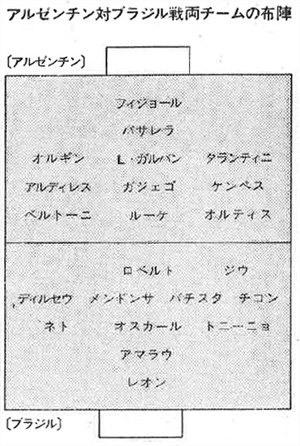 アルゼンチン対ブラジル戦両チームの布陣
〔アルゼンチン〕
フィジョール
パサレラ
オルギン L・ガルバン タランティニ
アルディレス ガジェゴ ケンペス
ベルトーニ ルーケ オルティス
ロベルト ジウ
ディルセウ メンドンサ バチスタ チコン
ネト オスカール トニーニョ
アマラウ
レオン
〔ブラジル〕